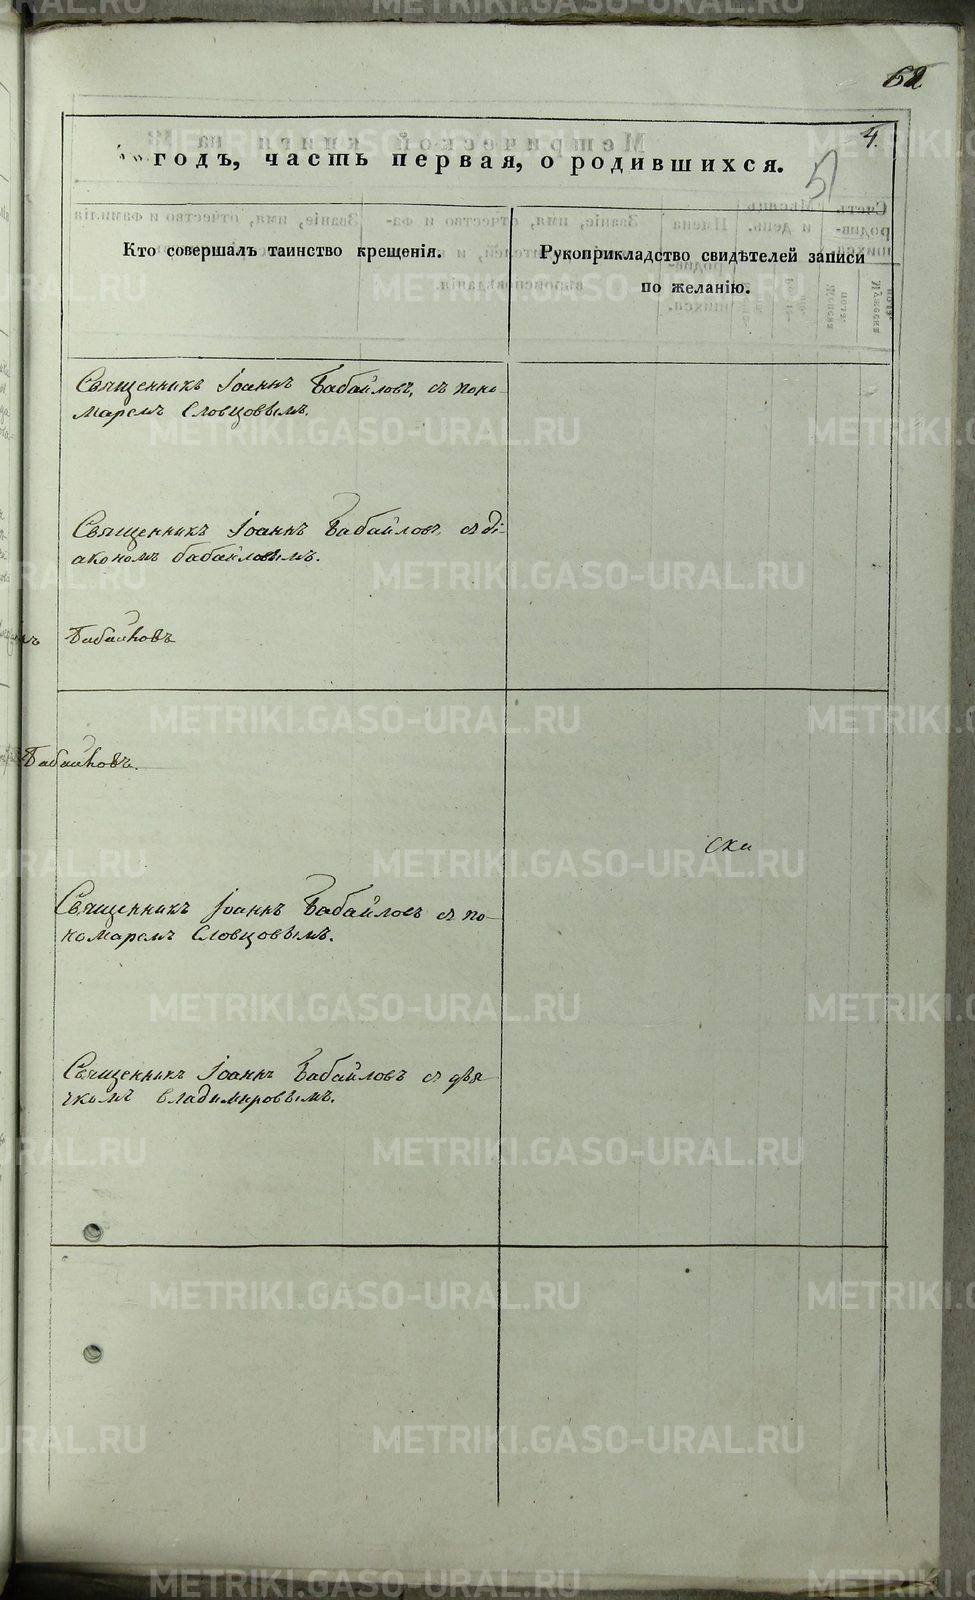 52
4.
51
годъ, часть первая, о родившихся.
Кто совершалъ таинство крещенія.
Рукоприкладство свидѣтелей записи
по желанію.
Священникъ Іоаннъ Бабайловъ, съ поно-
маремъ Словцовымъ.
Священникъ Іоаннъ Бабайловъ, съ ді-
акономъ бабайловымъ.
Бабайловъ
Бабайловъ.
Священникъ Іоаннъ Бабайловъ съ по-
номаремъ Словцовымъ.
Священникъ Іоаннъ Бабайловъ съ дья-
чкомъ владимировымъ.
METRIKI.GASO-URAL.RU